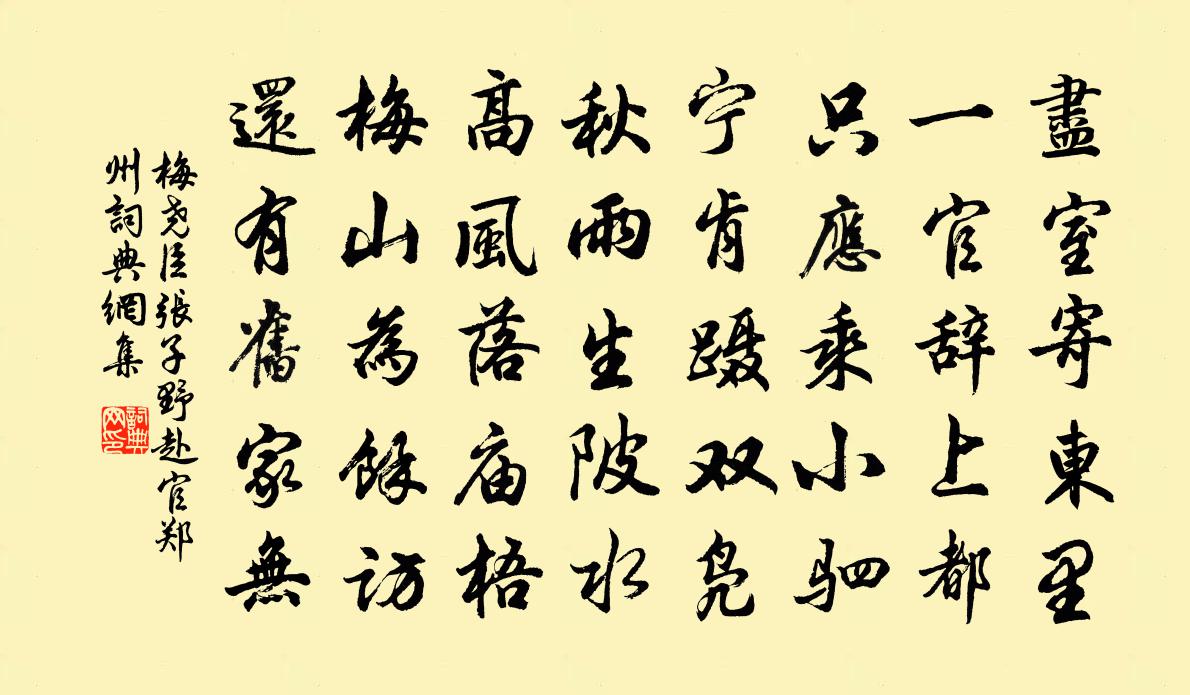 盡室寄東里
一官辞上都
只應乘小駟
宁肯蹑双凫
秋雨生陂水
高風落庙梧
梅山為餘訪
還有舊家無
梅尧臣張子野赴官郑
州詞典網集
詞典网印